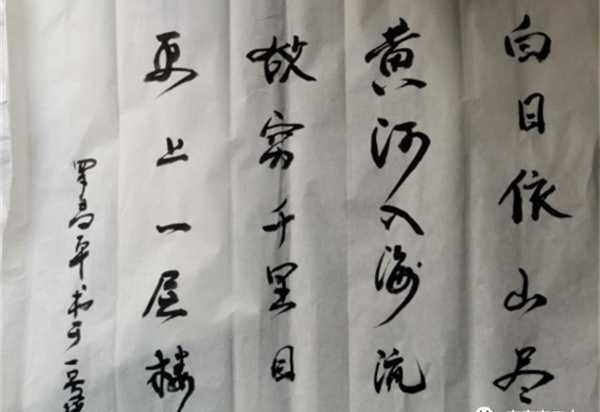 白日依山尽
黄河入海流
欲穷千里目
更上一层楼
罗高平书于